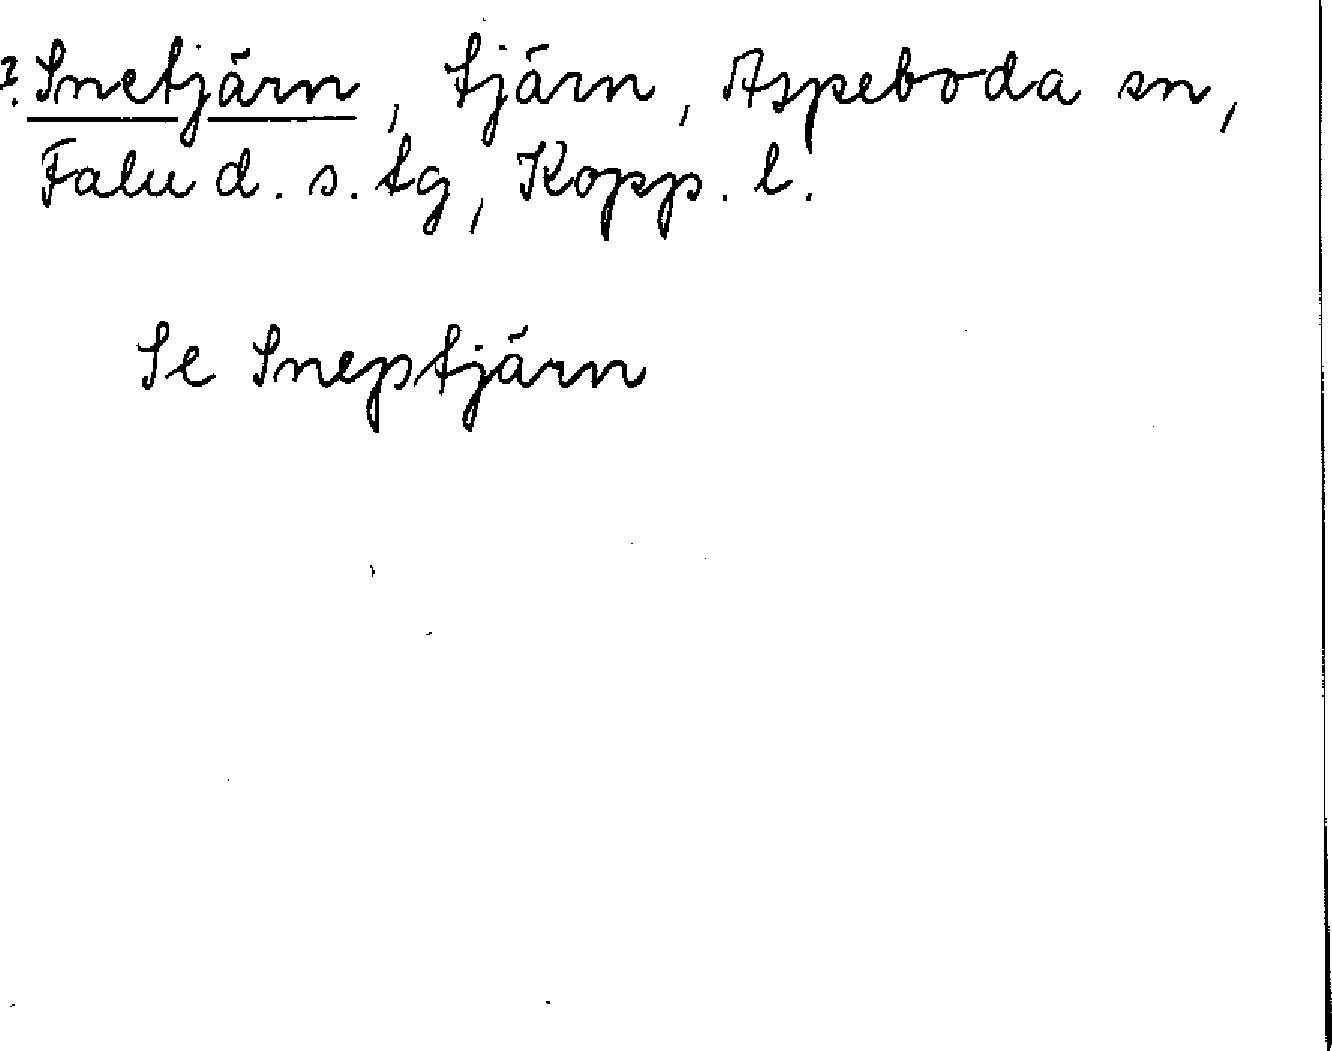 ? Snetjärn, tjärn, Aspeboda sn,
Falu d. s. tg, Kopp. l.
Se Sneptjärn